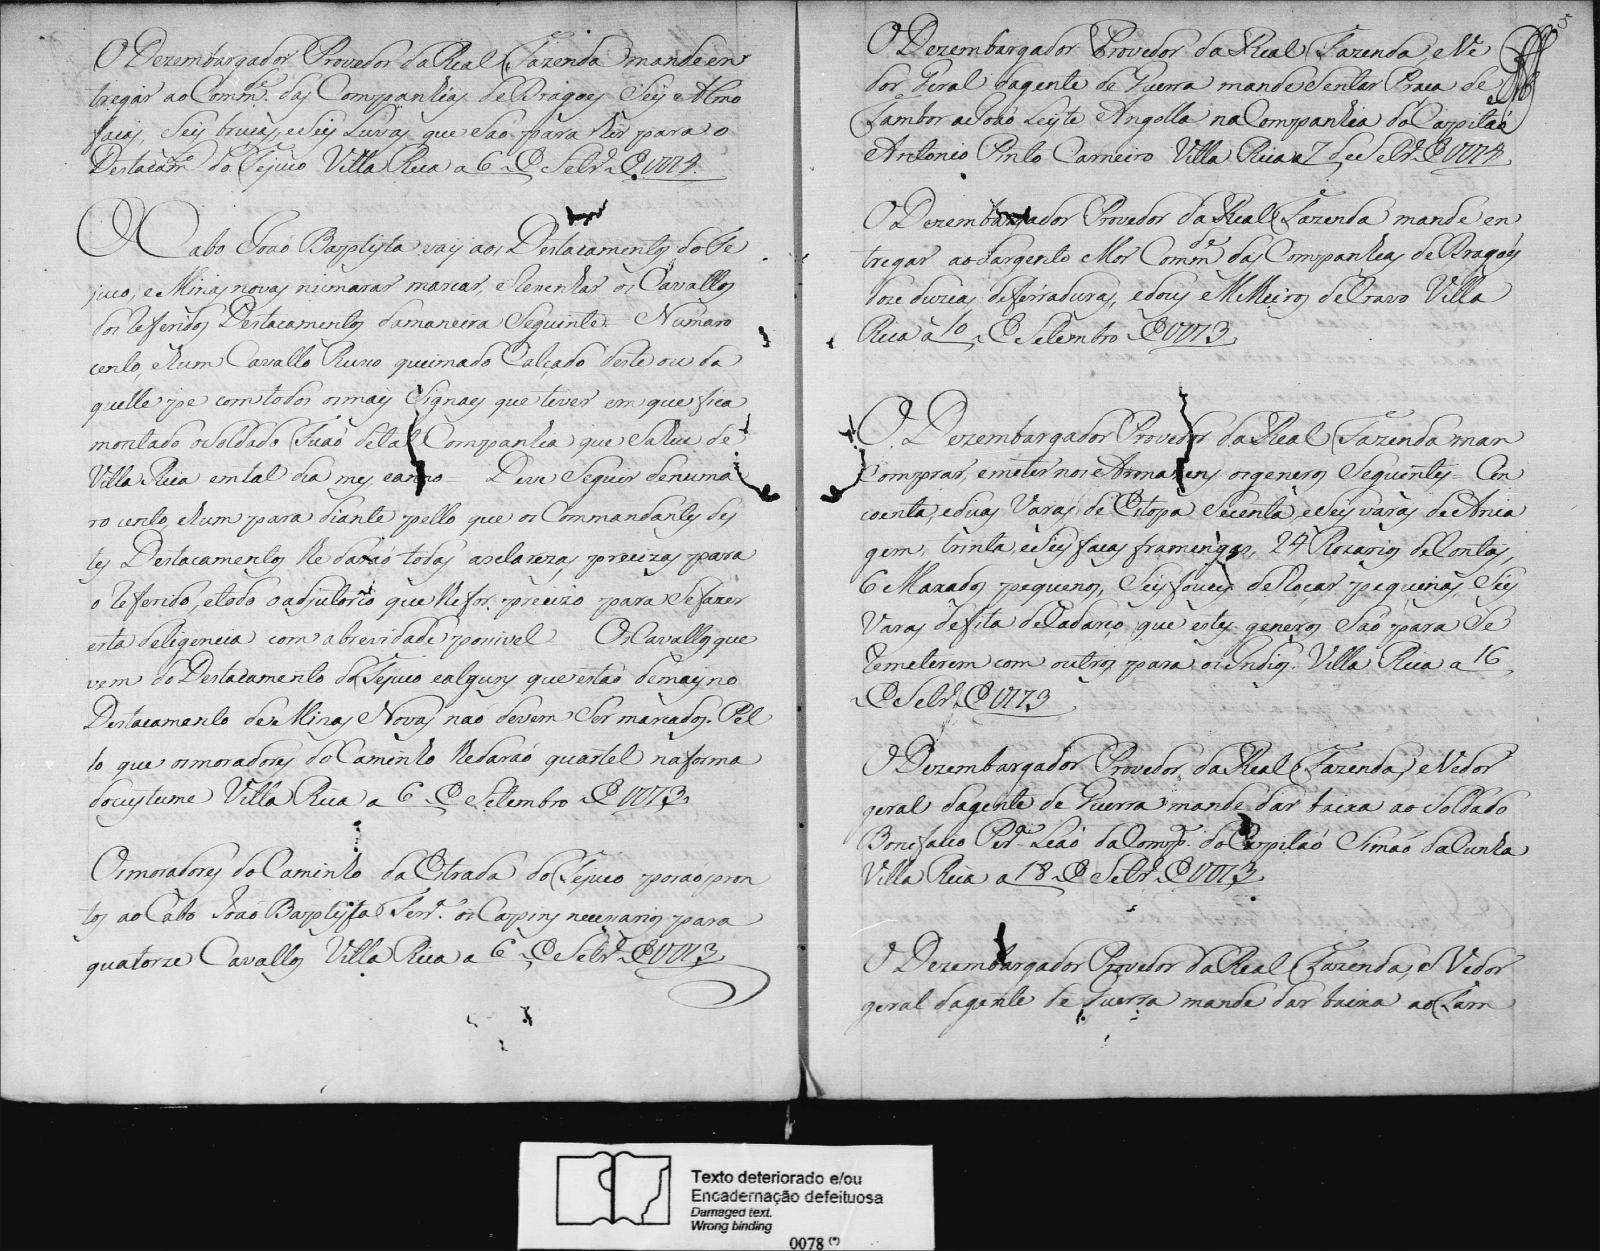 O Dezembargador Provedor da Real Fazenda mande en
tregar ao Comm.e das Companhias de Dragoes Seis Almo
faças, Seis bruças, e Seis Luvas que Saõ para hir para o
Destacam.to do Tejuco Villa Rica a 6 de Setbr.o de 1773
O Cabo Joaõ Baptista vay aos Destacamentos do Te
juco, e Minas novas numarar marcar, e rezenhar os Cavallos
dos referidos Destacamentos damaneira Seguinte = Numaro
cento, e hum Cavallo Ruço queimado Calçado deste ou da
quelle pe com todos os mais Signaes que tiver em que fica
montado o Soldado Fuaõ de tal Companhia que Sahiu de
Villa Rica em tal dia mes, e anno = Deve Seguir de numa
ro cento, e hum para diante pello que os Commandantes des
tes Destacamentos lhe daraõ todas as clarezas precizas para
o referido, e todo o adjutorio que lhe for precizo para Se fazer
esta deligencia com a brevidade possivel = Os Cavallos que
vem do Destacamento do Tejuco e alguns que estaõ de mais no
Destacamento de Minas Novas naõ devem Ser marcados. Pel
lo que os moradores do Caminho lhe daraõ quartel na forma
do custume Villa Rica a 6 de Setembro de 1773
Os moradores do Caminho da Estrada do Tejuco poraõ pron
tos ao Cabo Joaõ Baptista Ferr.a os Capins necessarios para
quatorze Cavallos Villa Rica a 6 de Setbr.o de 1773
O Dezembargador Provedor da Real Fazenda, e Ve
dor Geral da gente de Guerra mande Sentar Praca de
Tambor a Joaõ Leyte Angolla na Companhia do Capitaõ
Antonio Pinto Carneiro Villa Rica a 7 de Setbr.o de 1773
O Dezembargador Provedor da Real Fazenda mande en
tregar ao Sargento Mor Comm.de das Companhias de Dragoẽs
doze duzias de ferraduras, e dous Milheiros de Cravo Villa
Rica a 10 de Setembro de 1773
O Dezembargador Provedor da Real Fazenda man
Comprar, e meter nos Armazens os generos Seguintes = Cin
coenta, e duas Varas de Estopa Secenta, e Seis varas de Ania
gem, trinta, e Seis facas framengas, 24 Rozarios de Contas,
6 Maxados pequenos, Seis fouces de Roçar pequenas, Seis
Varas de fita de Cadarço que estes generos Saõ para Se
remeterem com outros para os Indios. Villa Rica a 16
de Setbr.o de 1773
O Dezembargador Provedor da Real Fazenda, e Vedor
geral da gente de Guerra mande dar baixa ao Soldado
Bonifacio Per.a Leaõ da Comp.a do Capitaõ Simaõ da Cunha
Villa Rica a 18 de Setbr.o de 1773
O Dezembargador Provedor da Real Fazenda, e Vedor
geral da gente de Guerra mande dar baixa ao Tam
Texto deteriorado e/ou
Encadernação defeituosa
Damaged text.
Wrong binding
0078 (*)